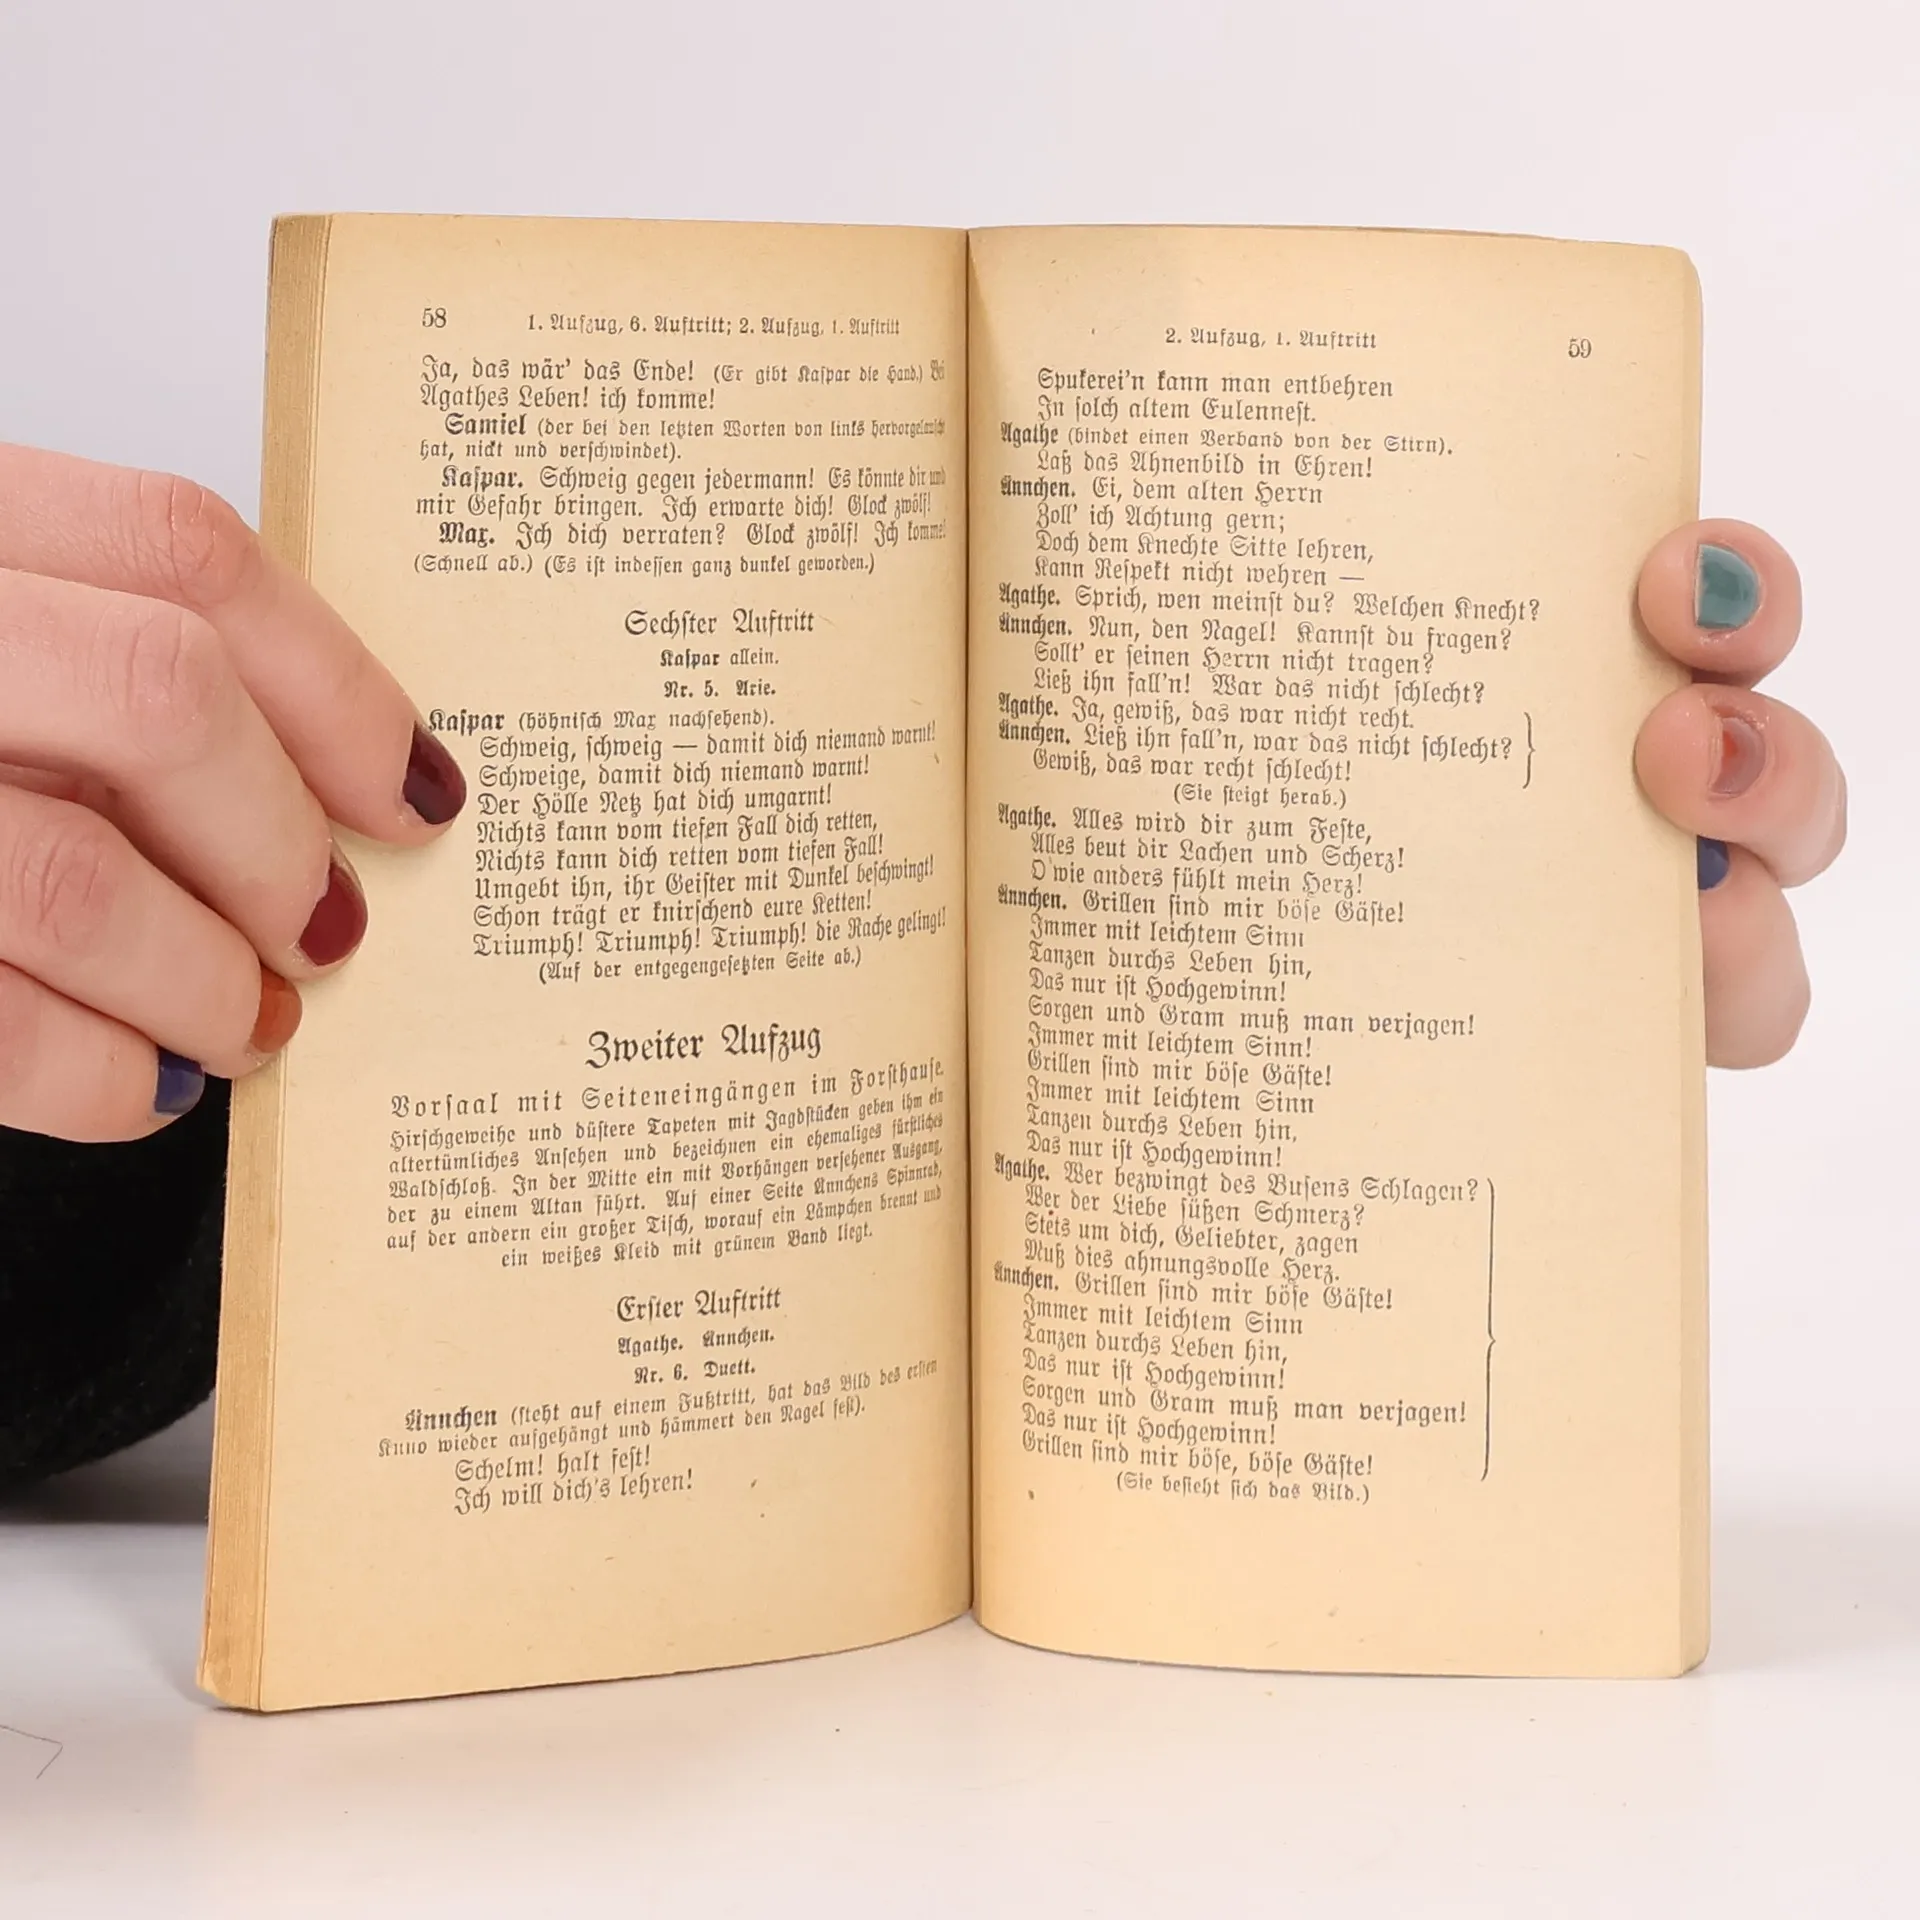 58
1. Aufzug, 6. Auftritt; 2. Aufzug, 1. Auftritt
Ja, das wär' das Ende! (Er gibt Kaspar die Hand.) Bei
Agathes Leben! ich komme!
Samiel (der bei den letzten Worten von links hervorgelauscht
hat, nickt und verschwindet).
Kaspar. Schweig gegen jedermann! Es könnte dir und
mir Gefahr bringen. Ich erwarte dich! Glock zwölf!
Max. Ich dich verraten? Glock zwölf! Ich komme!
(Schnell ab.) (Es ist indessen ganz dunkel geworden.)
Sechster Auftritt
Kaspar allein.
Nr. 5. Arie.
Kaspar (höhnisch Max nachsehend).
Schweig, schweig — damit dich niemand warnt!
Schweige, damit dich niemand warnt!
Der Hölle Netz hat dich umgarnt!
Nichts kann vom tiefen Fall dich retten,
Nichts kann dich retten vom tiefen Fall!
Umgebt ihn, ihr Geister mit Dunkel beschwingt!
Schon trägt er knirschend eure Ketten!
Triumph! Triumph! Triumph! die Rache gelingt!
(Auf der entgegengesetzten Seite ab.)
Zweiter Aufzug
Vorsaal mit Seiteneingängen im Forsthause.
Hirschgeweihe und düstere Tapeten mit Jagdstücken geben ihm ein
altertümliches Ansehen und bezeichnen ein ehemaliges fürstliches
Waldschloß. In der Mitte ein mit Vorhängen versehener Ausgang,
der zu einem Altan führt. Auf einer Seite Ännchens Spinnrad,
auf der andern ein großer Tisch, worauf ein Lämpchen brennt und
ein weißes Kleid mit grünem Band liegt.
Erster Auftritt
Agathe. Ännchen.
Nr. 6. Duett.
Ännchen (steht auf einem Fußtritt, hat das Bild des ersten
Kuno wieder aufgehängt und hämmert den Nagel fest).
Schelm! halt fest!
Ich will dich's lehren!
2. Aufzug, 1. Auftritt
59
Spukerei'n kann man entbehren
In solch altem Eulennest.
Agathe (bindet einen Verband von der Stirn).
Laß das Ahnenbild in Ehren!
Ännchen. Ei, dem alten Herrn
Zoll' ich Achtung gern;
Doch dem Knechte Sitte lehren,
Kann Respekt nicht wehren —
Agathe. Sprich, wen meinst du? Welchen Knecht?
Ännchen. Nun, den Nagel! Kannst du fragen?
Sollt' er seinen Herrn nicht tragen?
Ließ ihn fall'n! War das nicht schlecht?
Agathe. Ja, gewiß, das war nicht recht.
Ännchen. Ließ ihn fall'n, war das nicht schlecht?
Gewiß, das war recht schlecht!
(Sie steigt herab.)
Agathe. Alles wird dir zum Feste,
Alles beut dir Lachen und Scherz!
O wie anders fühlt mein Herz!
Ännchen. Grillen sind mir böse Gäste!
Immer mit leichtem Sinn
Tanzen durchs Leben hin,
Das nur ist Hochgewinn!
Sorgen und Gram muß man verjagen!
Immer mit leichtem Sinn!
Grillen sind mir böse Gäste!
Immer mit leichtem Sinn
Tanzen durchs Leben hin,
Das nur ist Hochgewinn!
Agathe. Wer bezwingt des Busens Schlagen?
Wer der Liebe süßen Schmerz?
Stets um dich, Geliebter, zagen
Muß dies ahnungsvolle Herz.
Ännchen. Grillen sind mir böse Gäste!
Immer mit leichtem Sinn
Tanzen durchs Leben hin,
Das nur ist Hochgewinn!
Sorgen und Gram muß man verjagen!
Das nur ist Hochgewinn!
Grillen sind mir böse, böse Gäste!
(Sie besieht sich das Bild.)